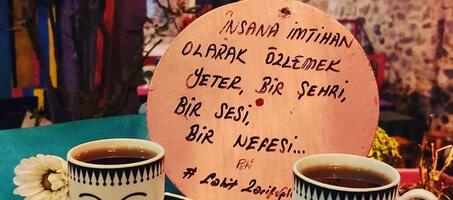 İNSANA İMTİHAN
OLARAK ÖZLEMEK
YETER, BİR ŞEHRİ,
BİR SESİ,
BİR NEFESİ...
# Cahit Zarifoğlu